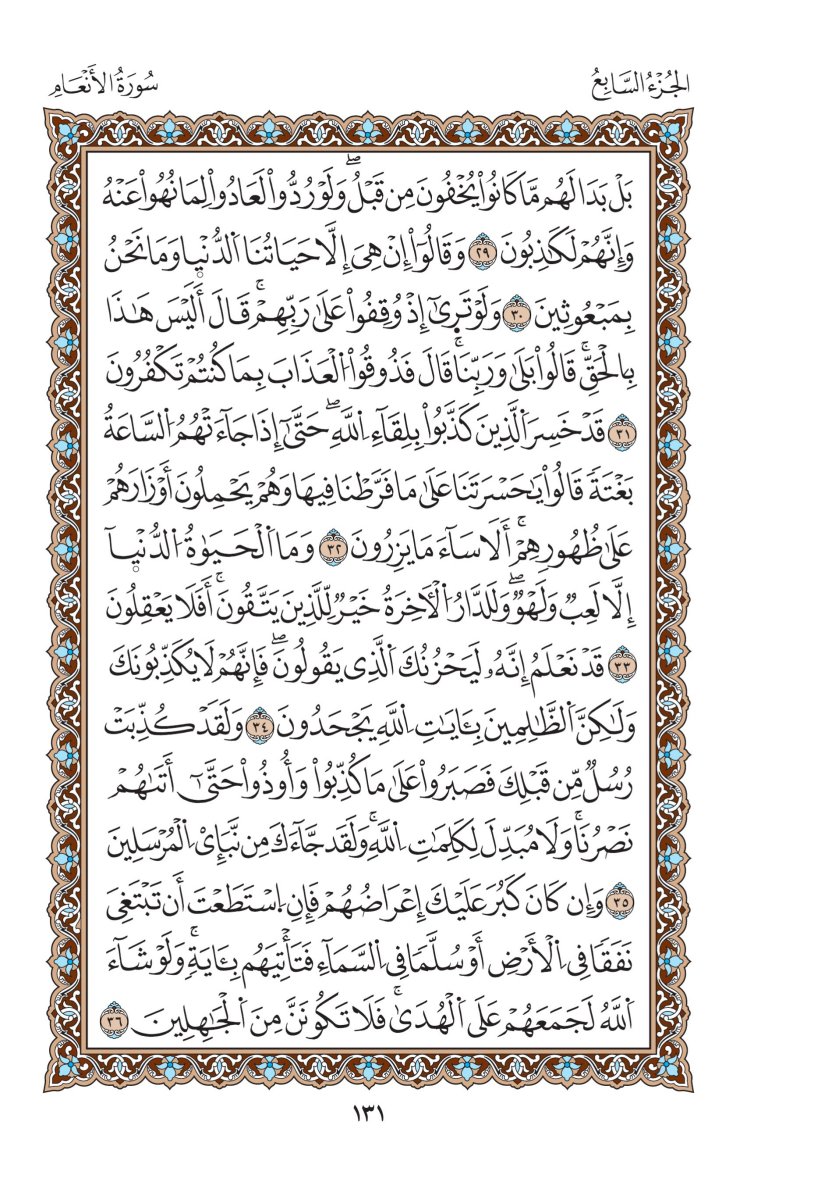 الجُزْءُ السَّابِعُ
سُورَةُ الأَنْعَامِ
بَلْ بَدَا لَهُم مَّا كَانُواْ يُخْفُونَ مِن قَبْلُۖ وَلَوْ رُدُّواْ لَعَادُواْ لِمَا نُهُواْ عَنْهُ
وَإِنَّهُمْ لَكَٰذِبُونَ ٢٩ وَقَالُوٓاْ إِنْ هِىَ إِلَّا حَيَاتُنَا اَلدُّنْيٜا وَمَا نَحْنُ
بِمَبْعُوثِينَ ٣٠ وَلَوْ تَرٜىٰٓ إِذْ وُقِفُواْ عَلَىٰ رَبِّهِمْۚ قَالَ أَلَيْسَ هَٰذَا
بِالْحَقِّۚ قَالُواْ بَلَىٰ وَرَبِّنَاۚ قَالَ فَذُوقُواْ اُلْعَذَابَ بِمَا كُنتُمْ تَكْفُرُونَ
٣١ قَدْ خَسِرَ اَلَّذِينَ كَذَّبُواْ بِلِقَآءِ اِللَّهِۖ حَتَّىٰٓ إِذَا جَآءَتْهُمُ اُلسَّاعَةُ
بَغْتَةً قَالُواْ يَٰحَسْرَتَنَا عَلَىٰ مَا فَرَّطْنَا فِيهَا وَهُمْ يَحْمِلُونَ أَوْزَارَهُمْ
عَلَىٰ ظُهُورِهِمْۚ أَلَا سَآءَ مَا يَزِرُونَ ٣٢ وَمَا اَلْحَيَوٰةُ اُلدُّنْيٜآ
إِلَّا لَعِبٌ وَلَهْوٌۖ وَلَلدَّارُ اُلْأٓخِرَةُ خَيْرٌ لِّلَّذِينَ يَتَّقُونَۚ أَفَلَا يَعْقِلُونَ
٣٣ قَدْ نَعْلَمُ إِنَّهُۥ لَيَحْزُنُكَ اَلَّذِى يَقُولُونَۖ فَإِنَّهُمْ لَا يُكَذِّبُونَكَ
وَلَٰكِنَّ اَلظَّٰلِمِينَ بِـَٔايَٰتِ اِللَّهِ يَجْحَدُونَ ٣٤ وَلَقَدْ كُذِّبَتْ
رُسُلٌ مِّن قَبْلِكَ فَصَبَرُواْ عَلَىٰ مَا كُذِّبُواْ وَأُوذُواْ حَتَّىٰٓ أَتَىٰهُمْ
نَصْرُنَاۚ وَلَا مُبَدِّلَ لِكَلِمَٰتِ اِللَّهِۚ وَلَقَد جَّآءَكَ مِن نَّبَإِيْ اِلْمُرْسَلِينَ
٣٥ وَإِن كَانَ كَبُرَ عَلَيْكَ إِعْرَاضُهُمْ فَإِنِ اِسْتَطَعْتَ أَن تَبْتَغِىَ
نَفَقًا فِى اِلْأَرْضِ أَوْ سُلَّمًا فِى اِلسَّمَآءِ فَتَأْتِيَهُم بِـَٔايَةٍۚ وَلَوْ شَآءَ
اَللَّهُ لَجَمَعَهُمْ عَلَى اَلْهُدَىٰۚ فَلَا تَكُونَنَّ مِنَ اَلْجَٰهِلِينَ ٣٦
١٣١